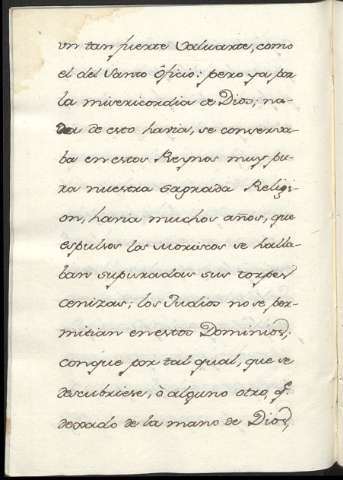 un tan fuerte Valuarte, como
el del Santo Oficio: pero ya pa
la misericordia de Dios, na-
da de esto havia, se conserva-
ba en estos Reynos muy pu-
ra nuestra sagrada Religi-
on, havia muchos años, que
espulsos los Moriscos se halla-
ban supuradas sus torpes
cenizas; los Judios no se per-
mitian en estos Dominios;
conque por tal qual, que se
descubriese, ò alguno otro, q.e
dexado de la mano de Dios,